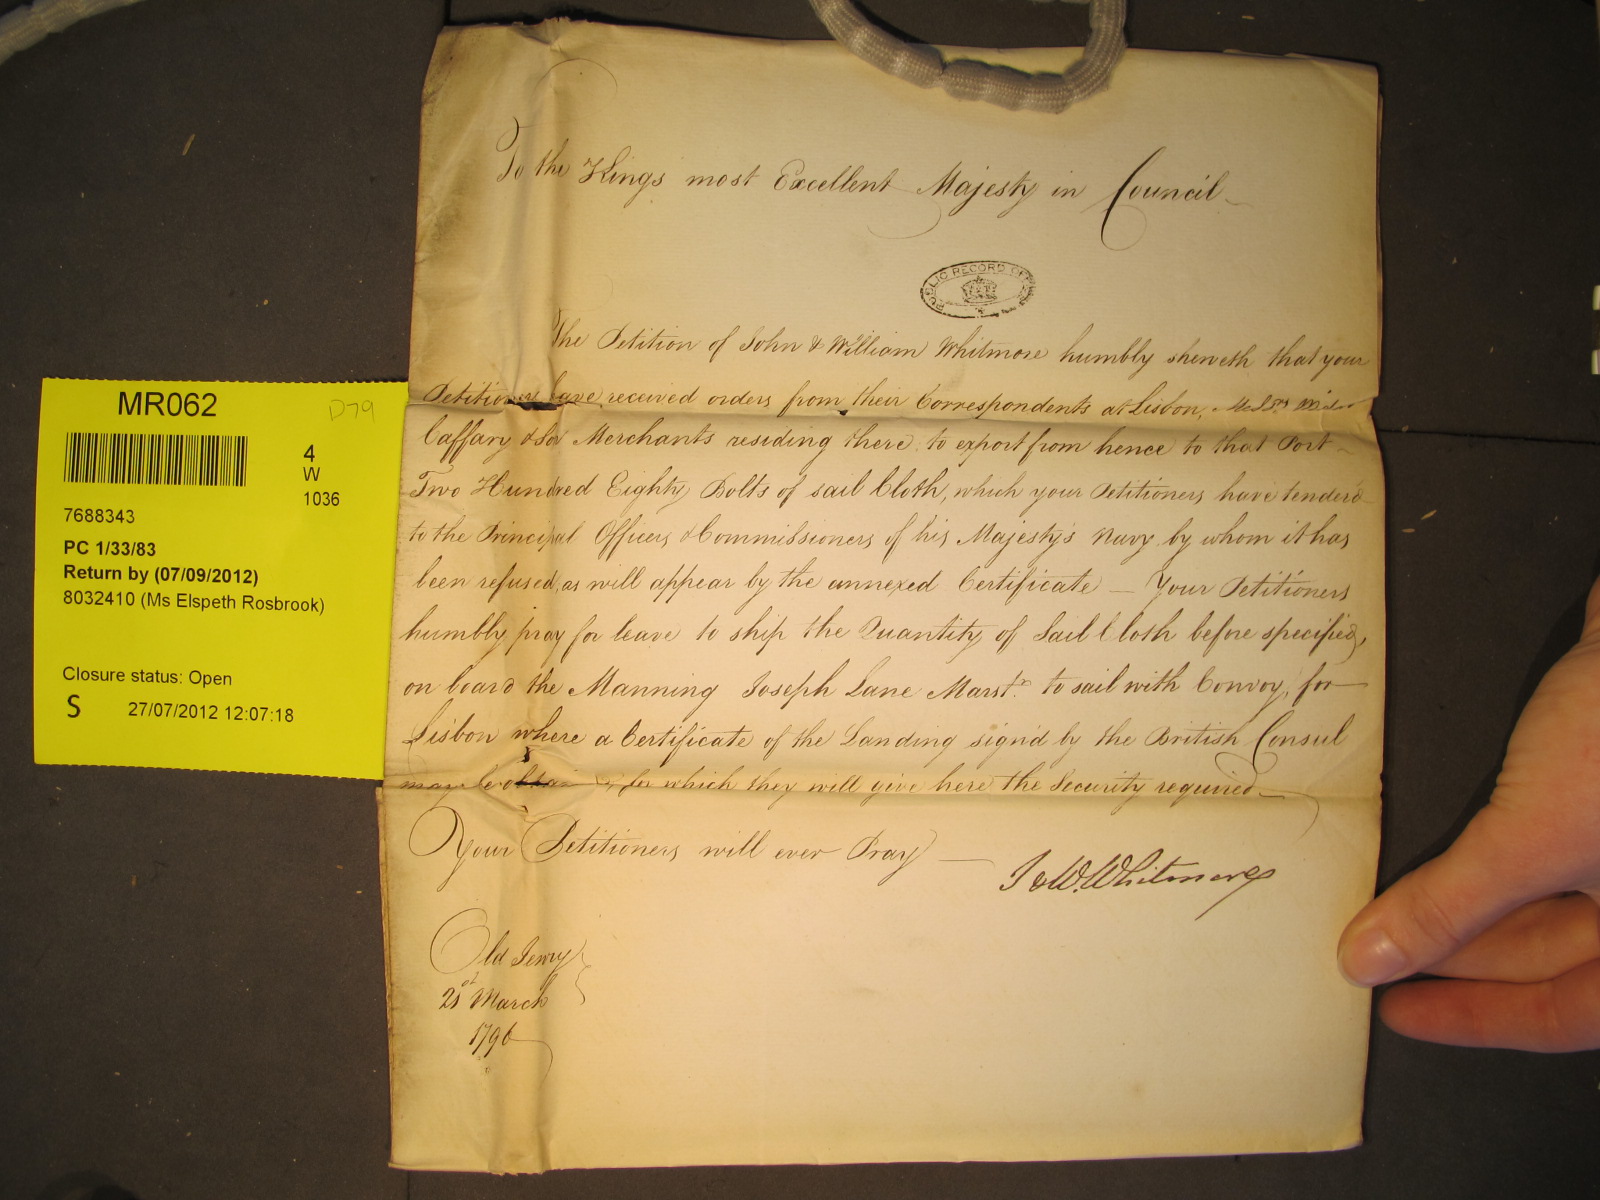 To the Kings most Excellent Majesty in Council
PUBLIC RECORD OFFICE
The Petition of John & William Whitmore humbly sheweth that your
Petitioners have received orders from their Correspondents at Lisbon, Messrs
Caffary & Son Merchants residing there to export from hence to that Port
Two Hundred Eighty Bolts of sail Cloth, which your Petitioners have tenderd
to the Principal Officers & Commissioners of his Majesty's Navy by whom it has
been refused, as will appear by the annexed Certificate — Your Petitioners
humbly pray for leave to ship the Quantity of Sail Cloth before specified,
on board the Manning Joseph Lane Mastr. to sail with Convoy, for
Lisbon where a Certificate of the Landing sign'd by the British Consul
may be for which they will give here the Security required
Your Petitioners will ever Pray —
J & W. Whitmore
Old Jewry
21st March
1796
MR062
D79
4
W
1036
7688343
PC 1/33/83
Return by (07/09/2012)
8032410 (Ms Elspeth Rosbrook)
Closure status: Open
S 27/07/2012 12:07:18